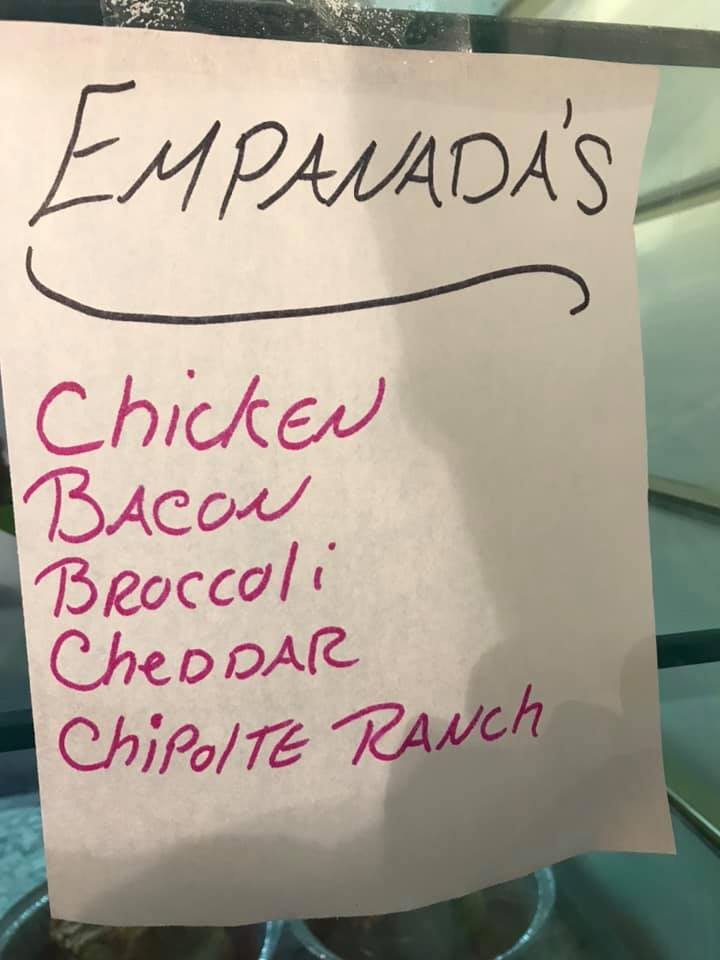 EMPANADA'S
Chicken
Bacon
Broccoli
Cheddar
Chipolte Ranch